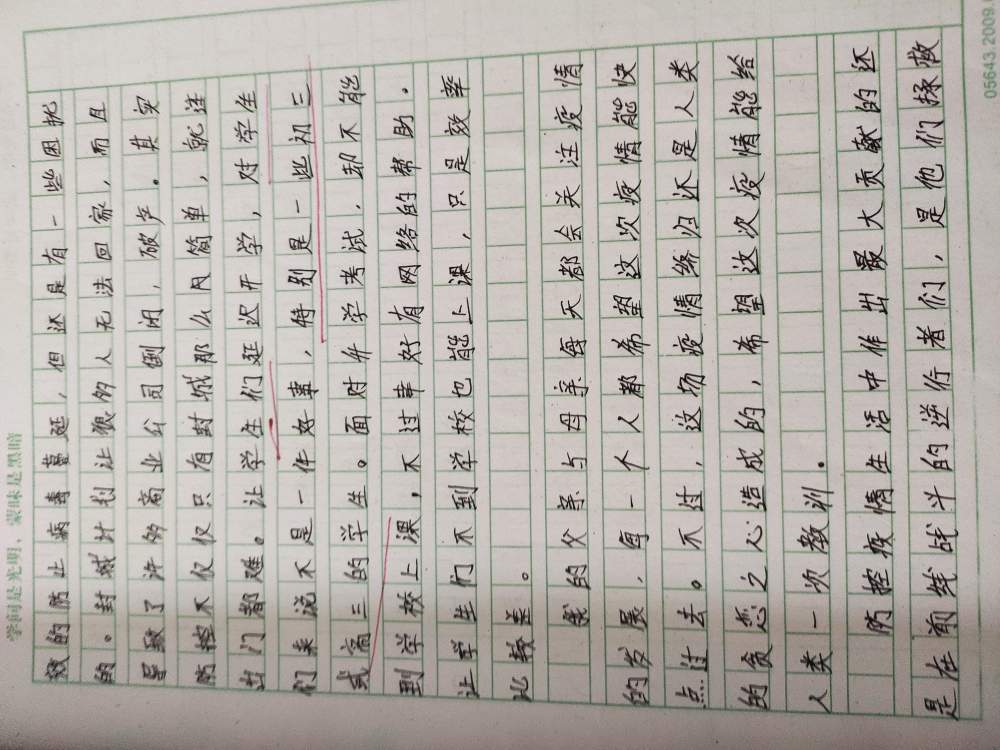 学问是光明，蒙昧是黑暗
效的防止病毒蔓延，但还是有一些困扰
的。封城计划让很多人无法回家，而且
导致了许多商业公司倒闭，破产。其实
防控不仅仅只有封城那么风简单，就连
出门都难。让学生们延迟开学，对学生
们来说不是一件好事，特别是一些初三
或高三的学生。面对升学考试，却不能
到学校上课，不过幸好有网络的帮助。
让学生们不到学校也能上课，只是效率
比较差。
我的父亲与母亲每天都会关注疫情
的发展，每一个人都希望这次疫情能快
点过去。不过，这场疫情终归还是人类
的贪恋之心造成的，希望这次疫情能给
人类一次教训。
防控疫情生活中作出最大贡献的还
是在前线战斗的逆行者们，是他们拯救
05643.2009.